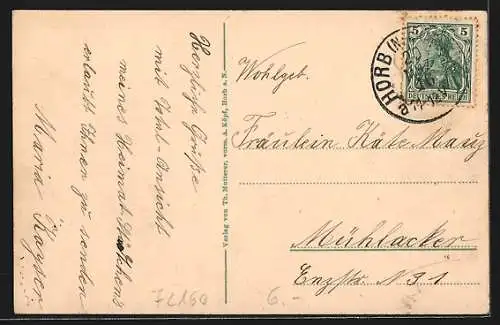 Herzliche Grüße
mit Ihrl. Ansicht
meines Heimat-Städtchens
erlaubt Ihnen zu senden
Maria Kayser
Verlag von Th. Mutterer, vorm. A. Köpf, Horb a. N.
5 5
DEUTSCHES REICH
HORB (N
Wohlgeb.
Fräulein Käte Mauz
Mühlacker
Enzstr. N 31
72160
6.-